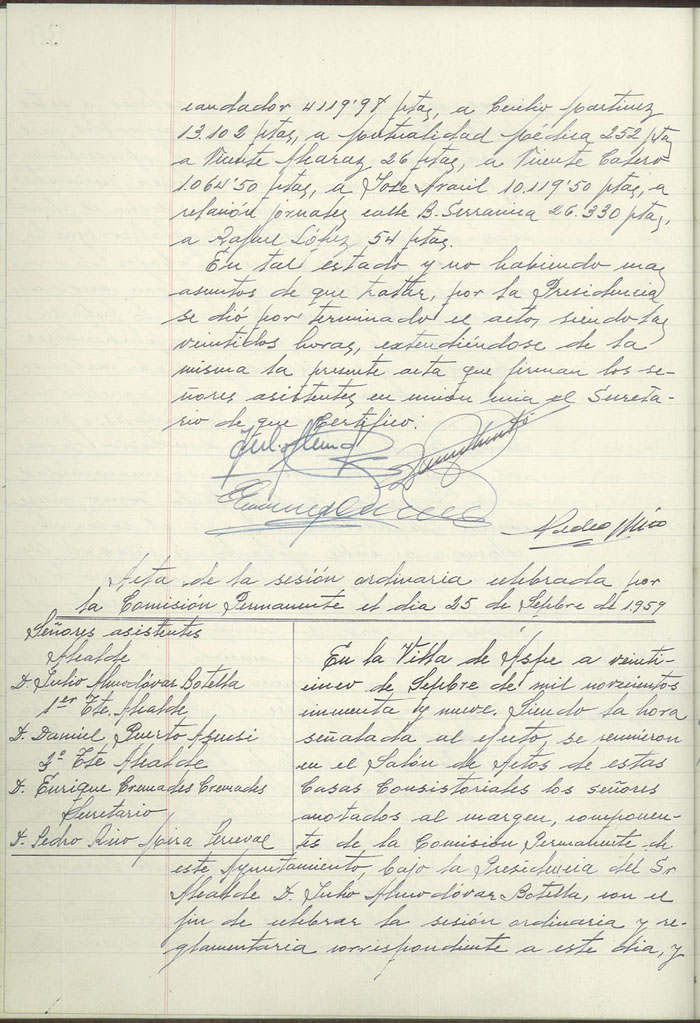 caudador 4119'97 ptas, a Cecilio Martinez
13.102 ptas, a Mutualidad Médica 252 ptas
a Vicente Alcaraz 26 ptas, a Vicente Calero
1.064'50 ptas, a Jose Aravil 10.119'50 ptas, a
relación jornales calle B. Serranica 26.330 ptas,
a Rafael López 54 ptas.
En tal estado y no habiendo mas
asuntos de que tratar, por la Presidencia
se dió por terminado el acto, siendo las
veintidos horas, extendiéndose de la
misma la presente acta que firman los se-
ñores asistentes en union mia el Secreta-
rio de que Certifico:
Pedro Miro
Acta de la sesión ordinaria celebrada por
la Comisión Permanente el dia 25 de Sepbre de 1.959
Señores asistentes
Alcalde
D. Julio Almodóvar Botella
1er Tte. Alcalde
D. Daniel Puerto
3º Tte Alcalde
D. Enrique Cremades Cremades
Secretario
D. Pedro Mira
En la Villa de Aspe a veinti-
cinco de Sepbre de mil novecientos
cincuenta y nueve. Siendo la hora
señalada al efecto, se reunieron
en el Salón de Actos de estas
Casas Consistoriales los señores
anotados al margen, componen-
tes de la Comisión Permanente de
este Ayuntamiento, bajo la Presidencia del Sr
Alcalde D. Julio Almodóvar Botella, con el
fin de celebrar la sesión ordinaria y re-
glamentaria correspondiente a este dia, y